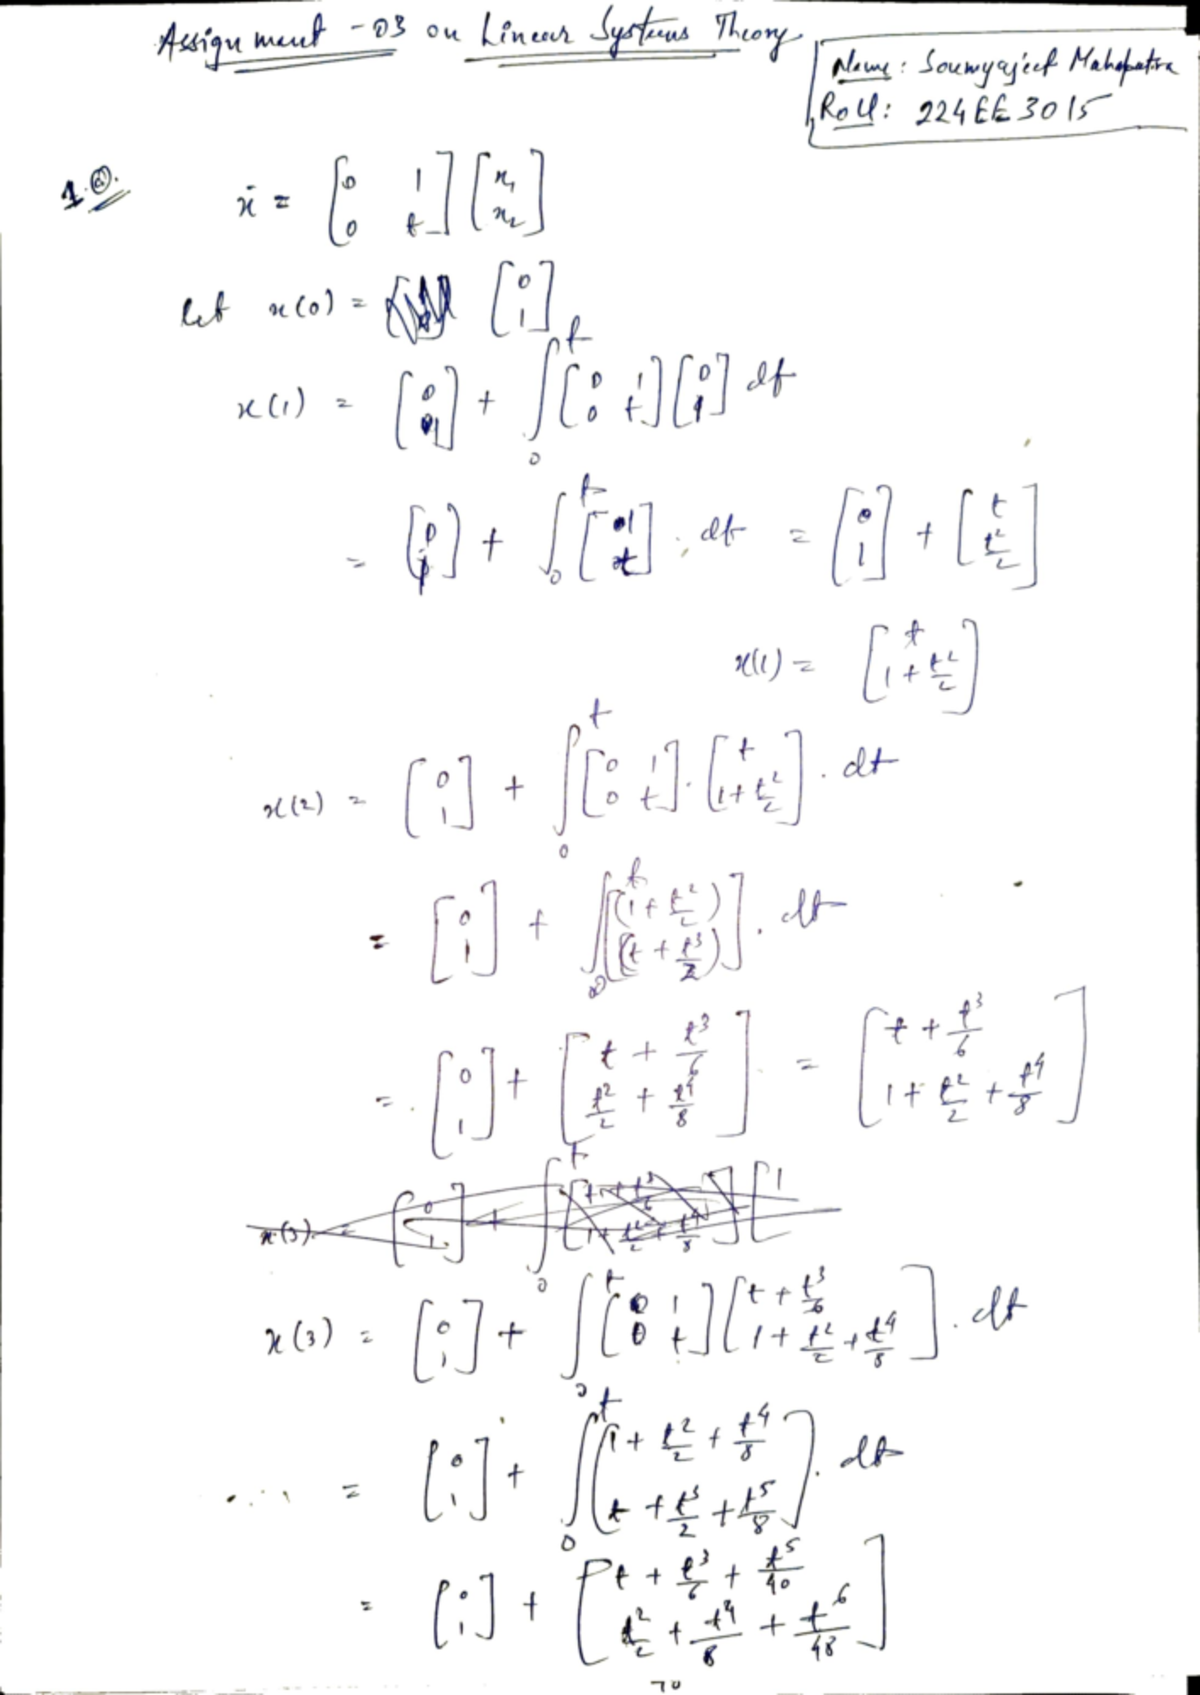 Assignment -03 on Linear Systems Theory
Name: Soumyajeet Mahapatra
Roll: 224EE3015
1.ⓐ. ẋ = [0 1; 0 t] [x₁; x₂]
let x(0) = [0; 1]
x(1) = [0; 1] + ∫₀ᵗ [0 1; 0 t] [0; 1] dt
= [0; 1] + ∫₀ᵗ [1; t] . dt = [0; 1] + [t; t²/2]
x(1) = [t; 1 + t²/2]
x(2) = [0; 1] + ∫₀ᵗ [0 1; 0 t] . [t; 1 + t²/2] . dt
= [0; 1] + ∫₀ᵗ [(1 + t²/2); (t + t³/2)] . dt
= [0; 1] + [t + t³/6; t²/2 + t⁴/8] = [t + t³/6; 1 + t²/2 + t⁴/8]
x(3) = [0; 1] + ∫₀ᵗ [t + t³/6; 1 + t²/2 + t⁴/8] [1
x(3) = [0; 1] + ∫₀ᵗ [0 1; 0 t] [t + t³/6; 1 + t²/2 + t⁴/8] . dt
= [0; 1] + ∫₀ᵗ [1 + t²/2 + t⁴/8; t + t³/2 + t⁵/8] . dt
= [0; 1] + [t + t³/6 + t⁵/40; t²/2 + t⁴/8 + t⁶/48]